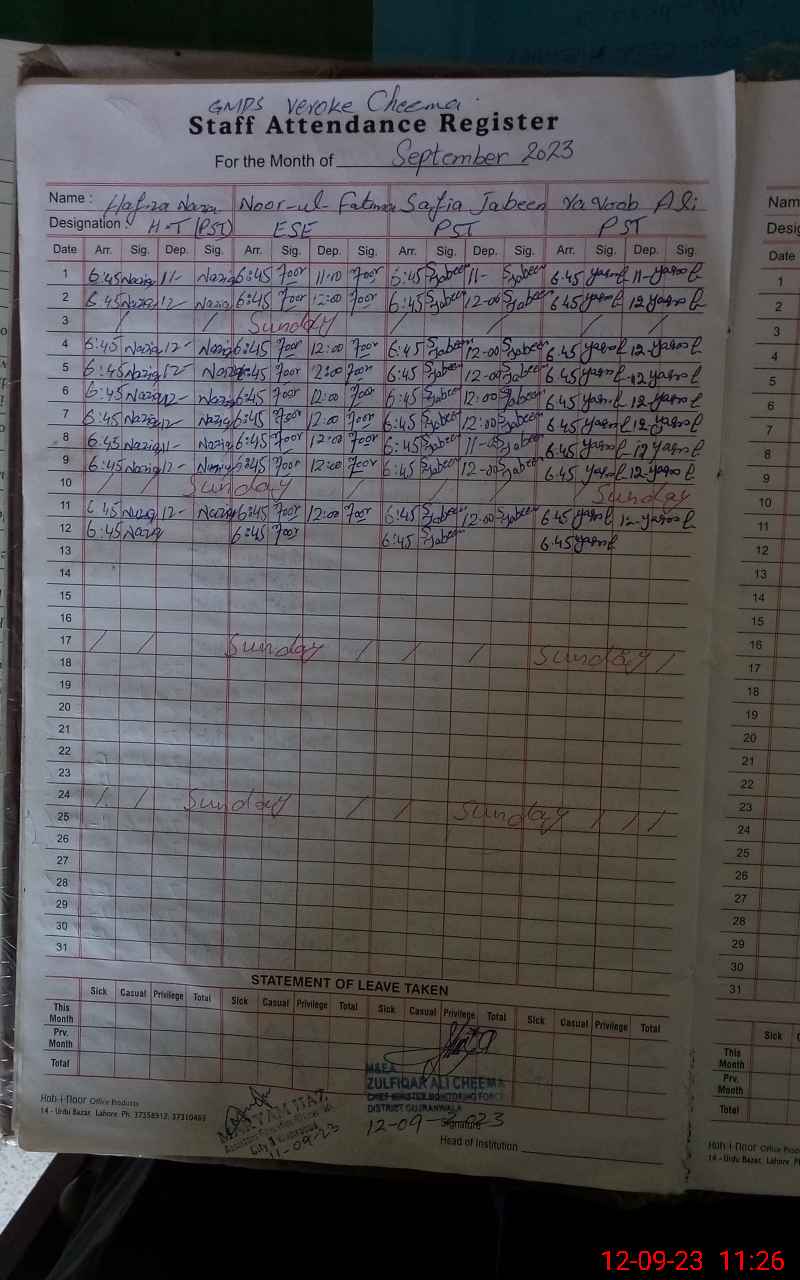 GMPS Veroke Cheema.
Staff Attendance Register
For the Month of September 2023
Name : Hafiza Nazia Noor-ul-Fatima Safia Jabeen Yaqoob Ali
Designation : H-T (PST) ESE PST PST
Date Arr. Sig. Dep. Sig. Arr. Sig. Dep. Sig. Arr. Sig. Dep. Sig. Arr. Sig. Dep. Sig.
1 6:45 Nazia 11- Nazia 6:45 11:00 6:45 SJabeen 11- SJabeen 6.45 11-
2 6:45 Nazia 12- Nazia 6:45 12:00 6:45 SJabeen 12-00 SJabeen 6.45 12
3 / / Sunday / / / / / /
4 6:45 Nazia 12- Nazia 6:45 12:00 6:45 SJabeen 12-00 SJabeen 6.45 12
5 6:45 Nazia 12- Nazia 6:45 12:00 6:45 SJabeen 12-00 SJabeen 6.45 12
6 6:45 Nazia 12- Nazia 6:45 12:00 6:45 SJabeen 12:00 SJabeen 6.45 12
7 6:45 Nazia 12- Nazia 6:45 12:00 6:45 SJabeen 12:00 SJabeen 6.45 12
8 6:45 Nazia 11- Nazia 6:45 12:00 6:45 SJabeen 11-00 SJabeen 6.45
9 6:45 Nazia 12- Nazia 6:45 12:00 6:45 SJabeen 12-00 SJabeen 6.45 12
10 / / Sunday / / / / Sunday
11 6:45 Nazia 12- Nazia 6:45 12:00 6:45 SJabeen 12:00 SJabeen 6.45 12
12 6:45 Nazia 6:45 6:45 SJabeen 6.45
13
14
15
16
17 / / Sunday / / / Sunday /
18
19
20
21
22
23
24 / / Sunday / / Sunday / / /
25
26
27
28
29
30
31
STATEMENT OF LEAVE TAKEN
Sick Casual Privilege Total Sick Casual Privilege Total Sick Casual Privilege Total Sick Casual Privilege Total
This Month
Prv. Month
Total
M&EA
ZULFIQAR ALI CHEEMA
CHIEF MINISTER MONITORING FORCE
DISTRICT GUJRANWALA
12-09-2023
11-09-23
Signature
Head of Institution
Hob-i-Noor Office Products
14 - Urdu Bazar, Lahore. Ph: 37358912, 37310469
Nam
Desig
Date
1
2
3
4
5
6
7
8
9
10
11
12
13
14
15
16
17
18
19
20
21
22
23
24
25
26
27
28
29
30
31
Sick
This Month
Prv. Month
Total
Hob-i-Noor Office Pro
14 - Urdu Bazar, Lahore. Ph
12-09-23 11:26